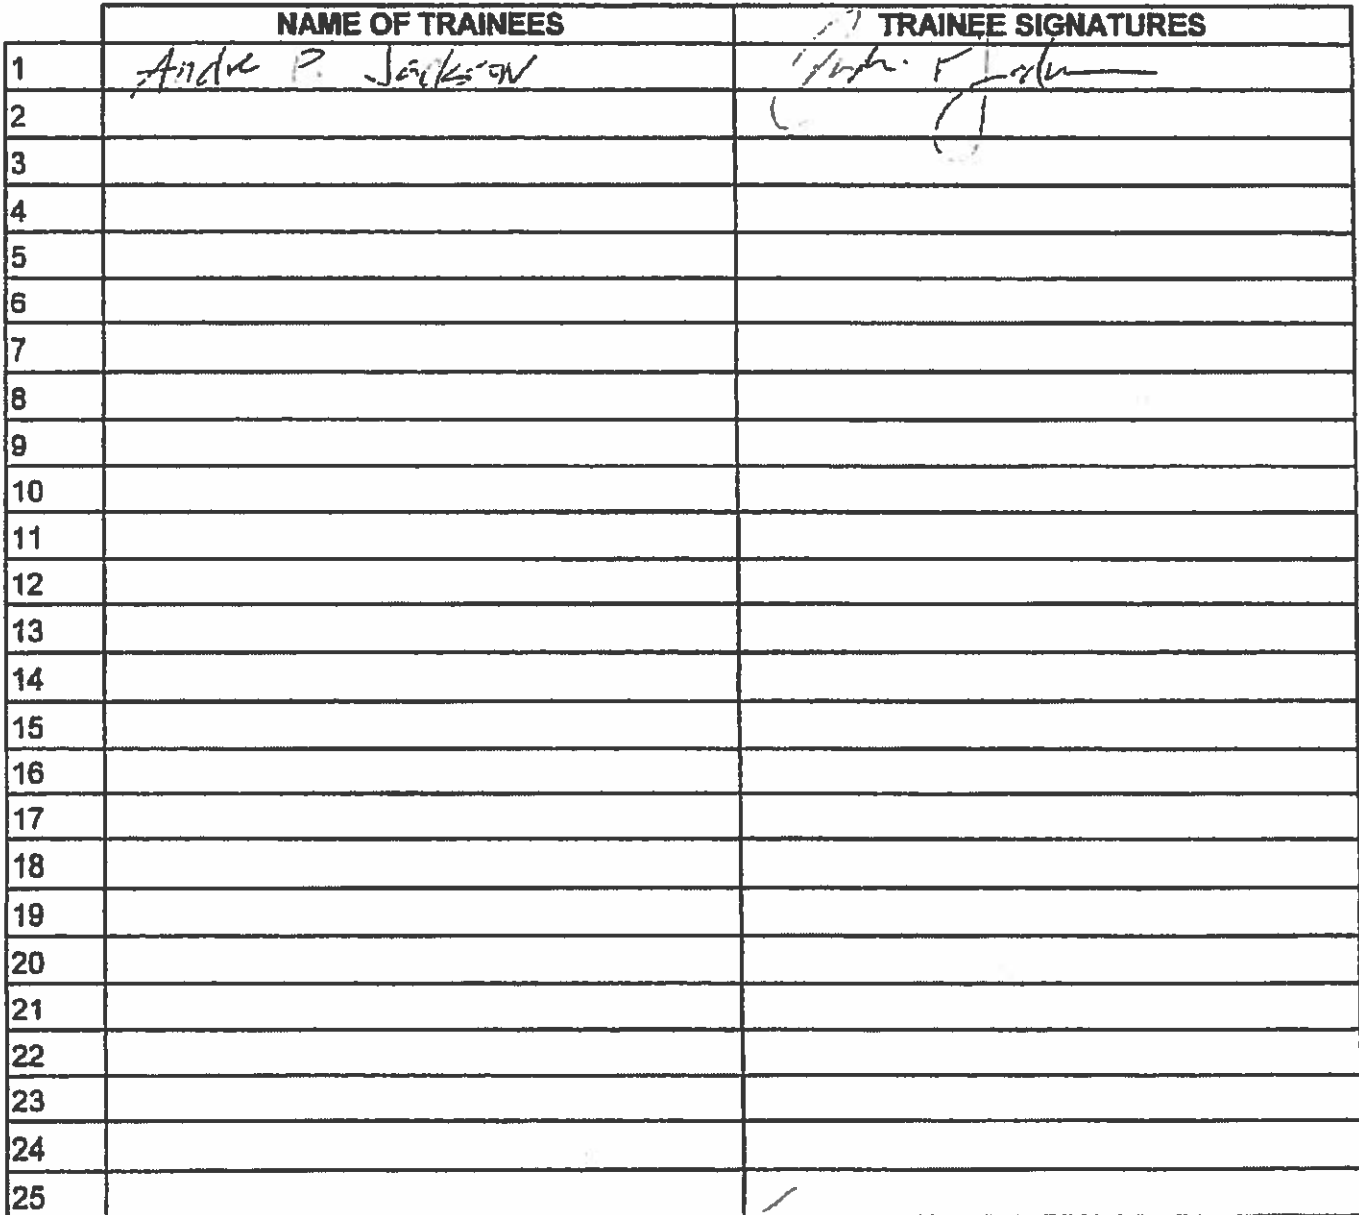 NAME OF TRAINEES TRAINEE SIGNATURES
1 Andre P. Jackson
2
3
4
5
6
7
8
9
10
11
12
13
14
15
16
17
18
19
20
21
22
23
24
25